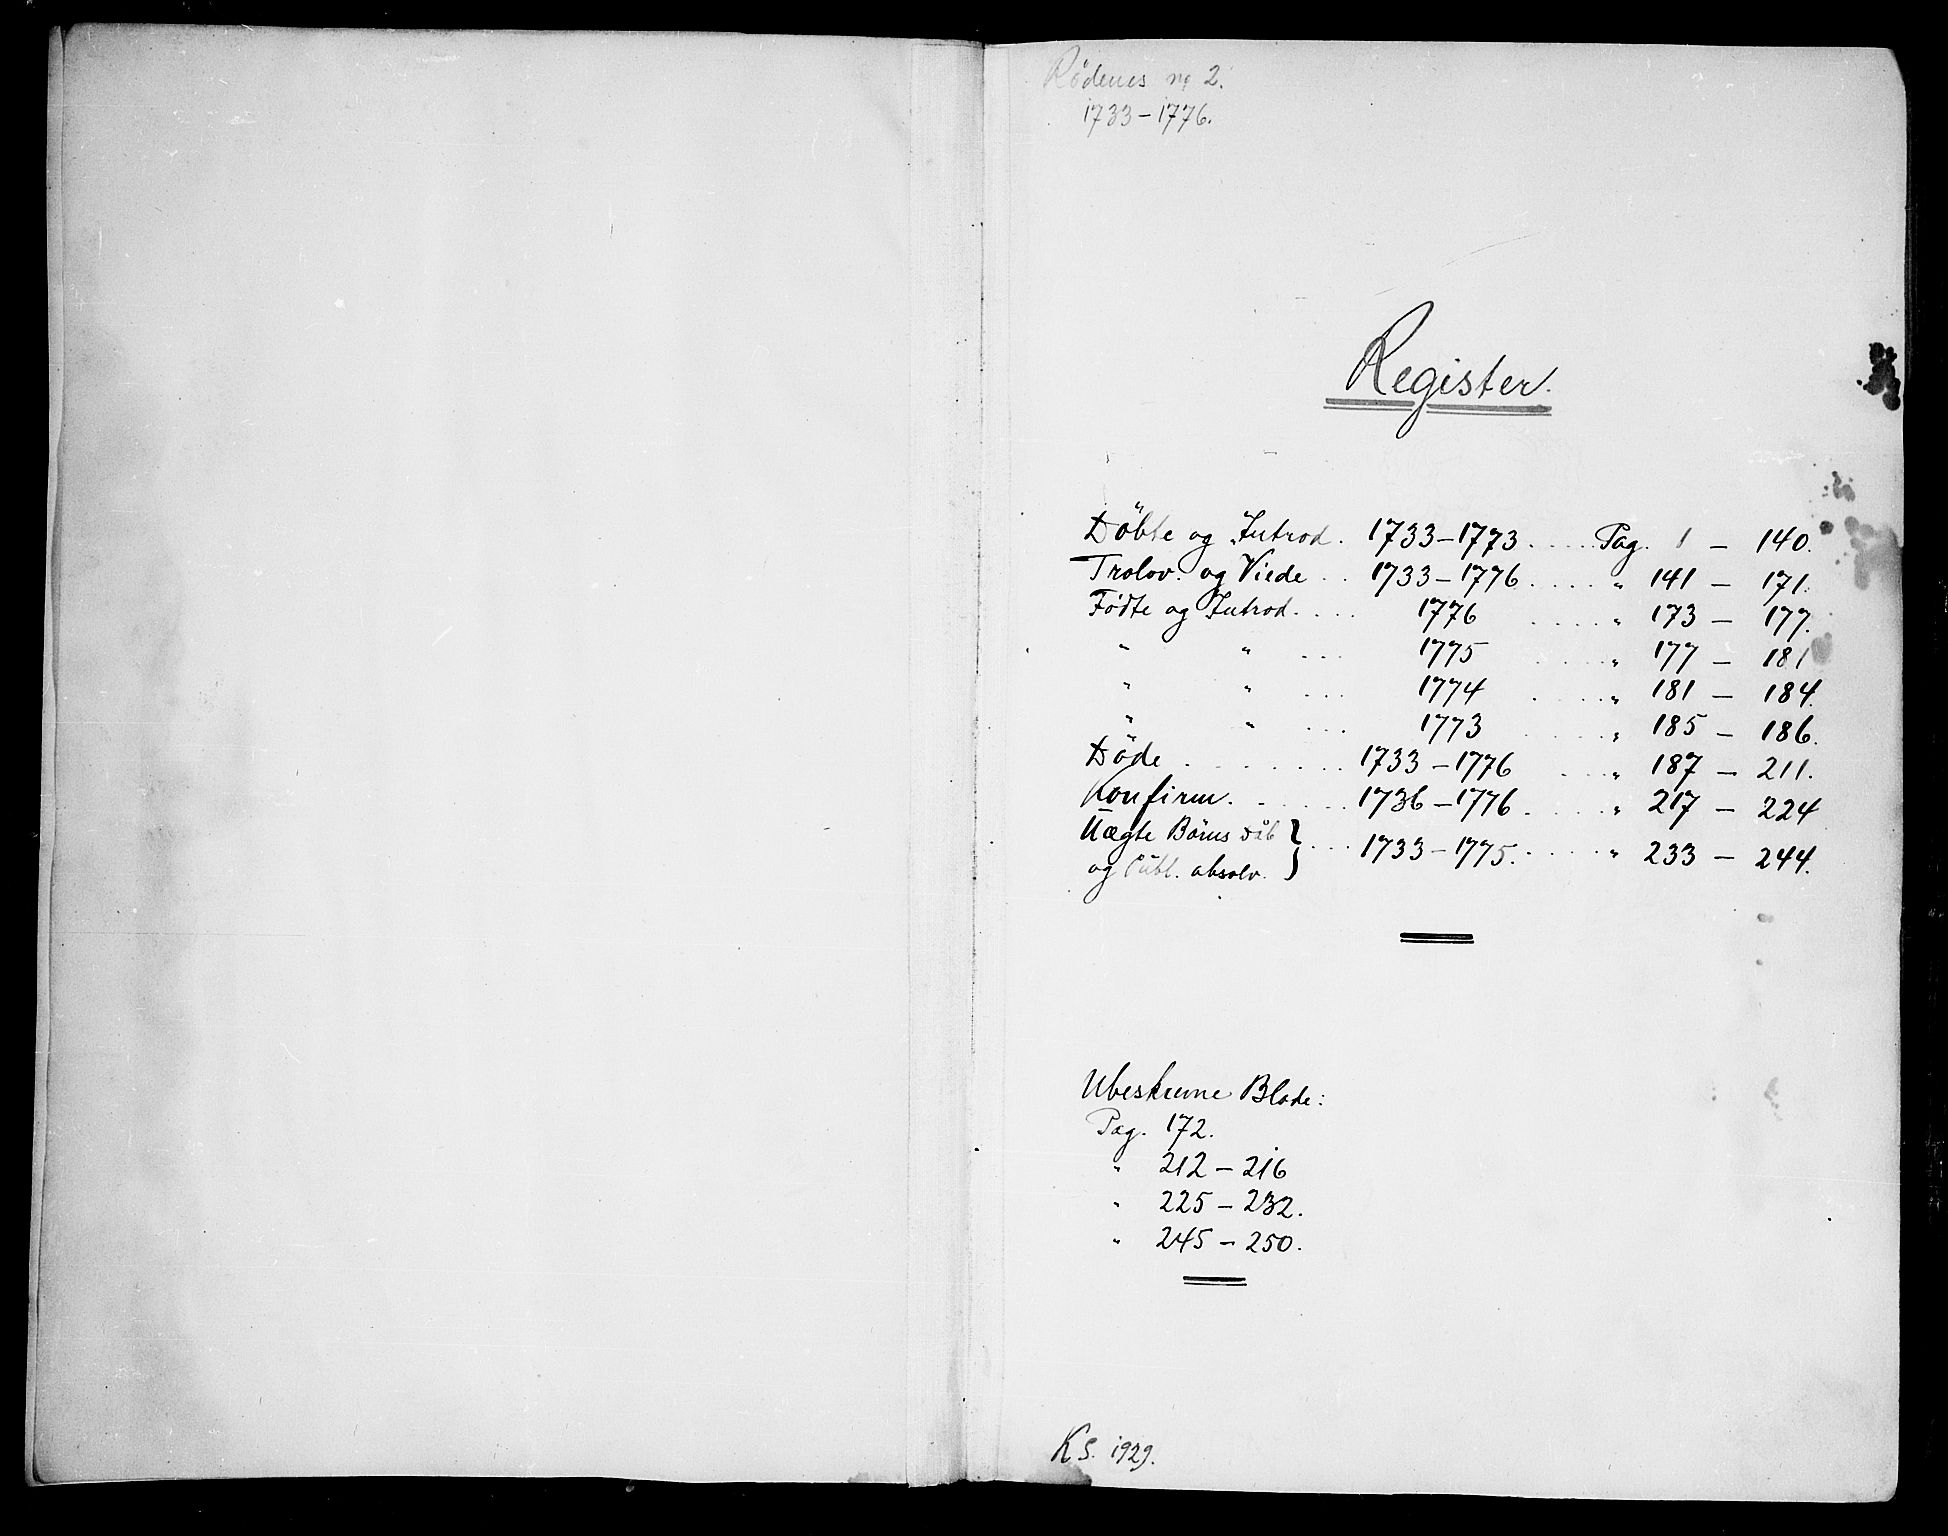 Rödenes nr 2.
1733-1776.
Register.
Döbte og Introd. 1733-1773 ..... Pag. 1 - 140.
Trolov. og Viede .. 1733-1776 ..... " 141 - 171.
Födte og Introd. .... 1776 ..... " 173 - 177.
" " ... 1775 ..... " 177 - 181
" " ... 1774 ..... " 181 - 184.
" " ... 1773 ..... " 185 - 186.
Döde ........ 1733-1776 .... " 187 - 211.
Konfirm. ..... 1736-1776 ..... " 217 - 224
Uægte Börns Dåb
og Publ. absolv. } ... 1733-1775. .... " 233 - 244.
Ubeskrevne Blade:
Pag. 172.
" 212-216
" 225-232.
" 245-250.
K S. 1929.